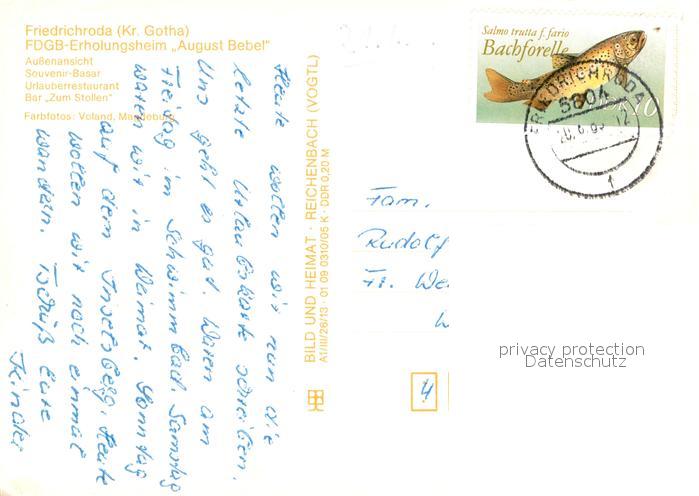 Friedrichroda (Kr. Gotha)
FDGB-Erholungsheim „August Bebel"
Außenansicht
Souvenir-Basar
Urlauberrestaurant
Bar „Zum Stollen"
Farbfotos: Voland, Magdeburg
Heute wollen wir nun die
letzte Urlaubskarte schreiben.
Uns geht es gut. Waren am
Freitag im Schwimmbad. Samstag
waren wir in Weimar. Sonntag
auf dem Inselsberg. Heute
wollen wir noch einmal
wandern. Tschüß Eure
Kinder
BILD UND HEIMAT · REICHENBACH (VOGTL)
A1/III/26/13 · 01 09 0310/05 K · DDR 0,20 M
Salmo trutta f. fario
Bachforelle
DDR 10
FRIEDRICHRODA
5804
Fam.
Rudolf
4
privacy protection
Datenschutz